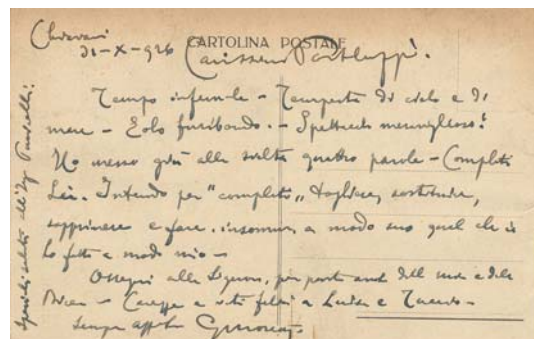 Chiavari
31-X-926
CARTOLINA POSTALE
Carissimo Portaluppi.
Tempo infernale - Tempesta di cielo e di
mare - Eolo furibondo. - Spettacolo meraviglioso!
Ho messo giù alla svelta quattro parole - Completi
Lei. Intendo per "completi" togliere, sostituire,
sopprimere e fare, insomma, a modo suo quel che io
ho fatto a modo mio -
Ossequi alla Signora, per parte anche della mia e della
Carezze e voti felici a Luisa e
Sempre affmo
Speciali saluti all'Ing.